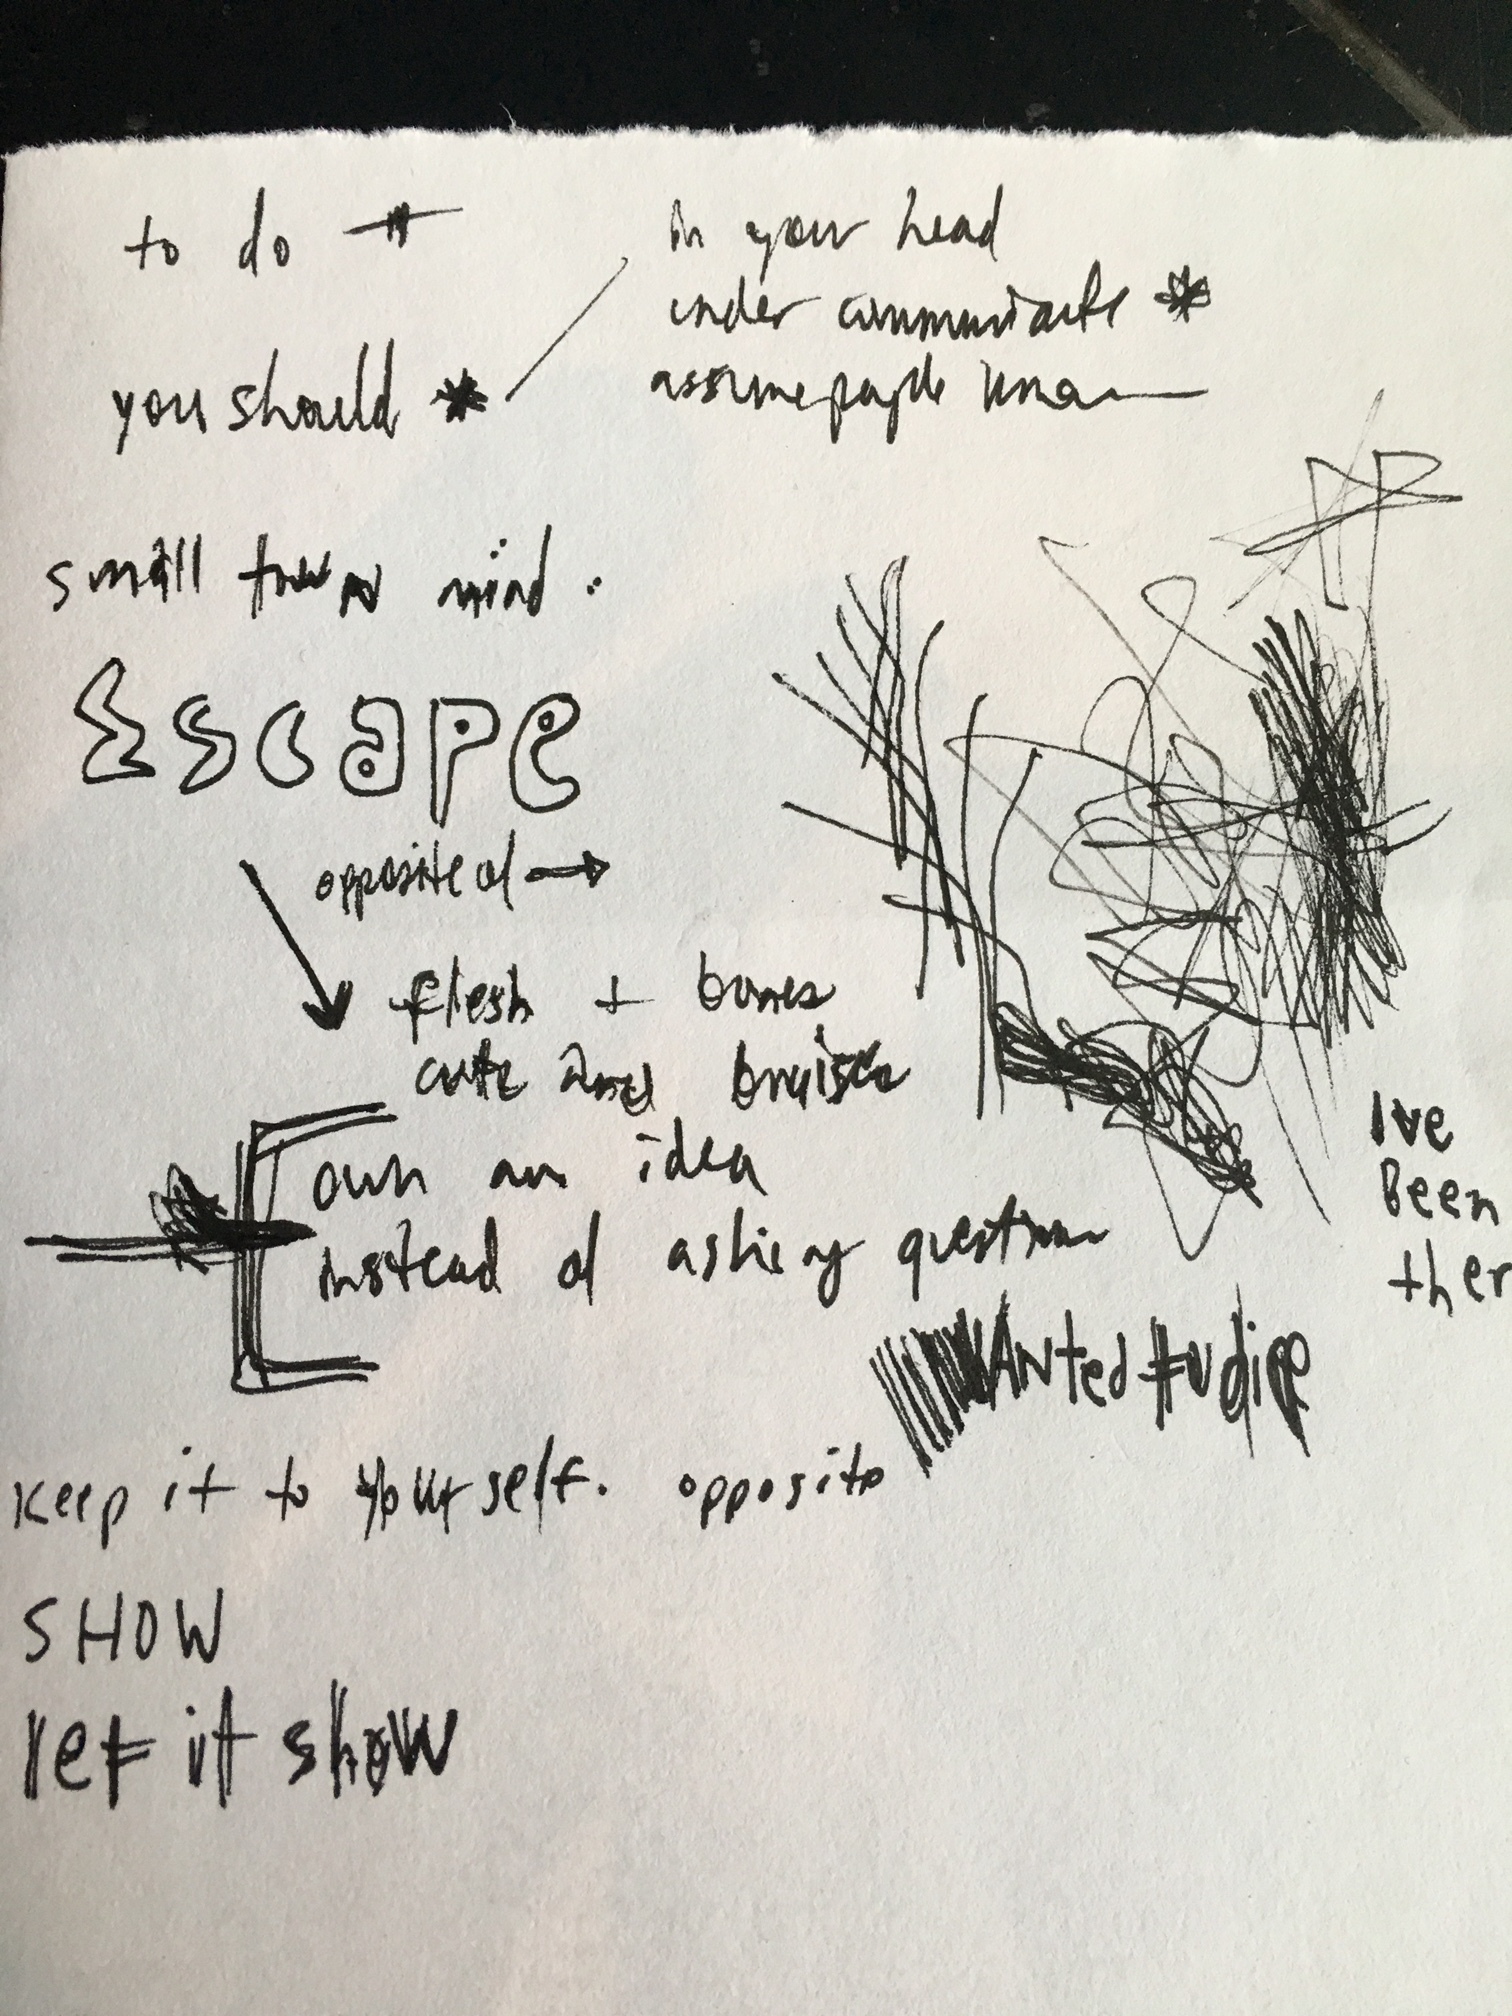 to do
in your head
under communicate *
you should *
assume people know
small town mind :
Escape
opposite of →
flesh + bones
cuts and bruises
own an idea
instead of asking question
I've
Been
ther
WANted
keep it to yourself. opposite
SHOW
let it show